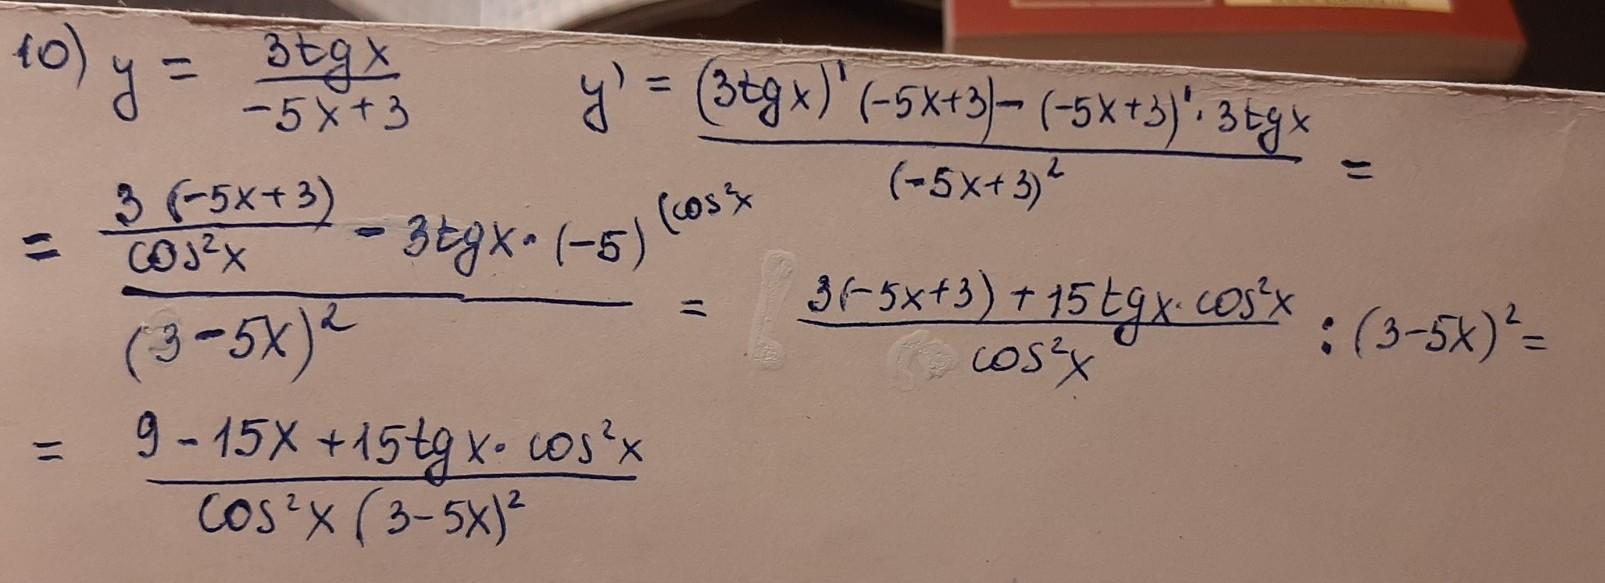 10) y = 3tgx / -5x+3    y' = (3tgx)' (-5x+3) - (-5x+3)' · 3tgx / (-5x+3)² =
= 3 (-5x+3) / cos²x - 3tgx · (-5) (cos²x / (3-5x)² = 3(-5x+3) + 15tgx · cos²x / cos²x : (3-5x)² =
= 9 - 15x + 15tgx · cos²x / cos²x (3-5x)²